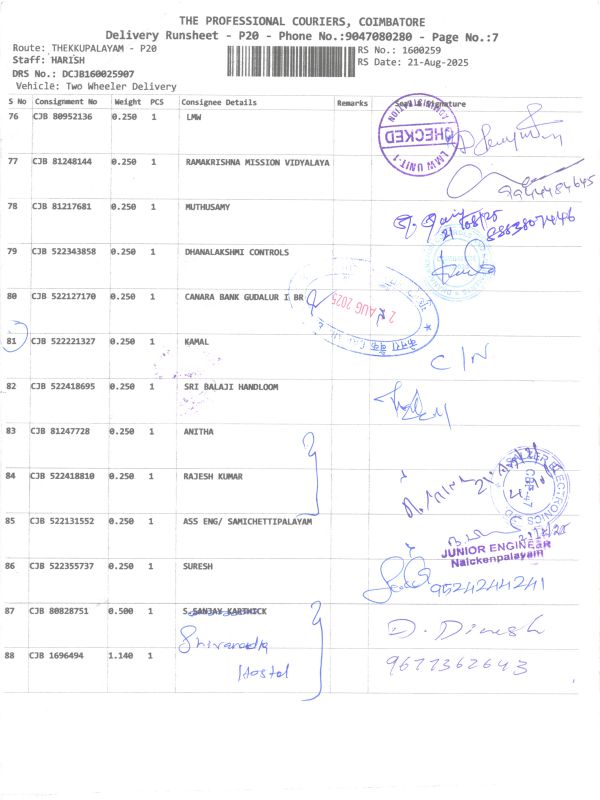 THE PROFESSIONAL COURIERS, COIMBATORE
Delivery Runsheet - P20 - Phone No.:9047080280 - Page No.:7
Route: THEKKUPALAYAM - P20 RS No.: 1600259
Staff: HARISH RS Date: 21-Aug-2025
DRS No.: DCJB160025907
Vehicle: Two Wheeler Delivery
S No Consignment No Weight PCS Consignee Details Remarks Seal & Signature
76 CJB 80952136 0.250 1 LMW
CHECKED
LMW UNIT-1
77 CJB 81248144 0.250 1 RAMAKRISHNA MISSION VIDYALAYA
9944484645
78 CJB 81217681 0.250 1 MUTHUSAMY
21/08/25 8883807446
79 CJB 522343858 0.250 1 DHANALAKSHMI CONTROLS
80 CJB 522127170 0.250 1 CANARA BANK GUDALUR I BR
AUG 2025
81 CJB 522221327 0.250 1 KAMAL C/N
82 CJB 522418695 0.250 1 SRI BALAJI HANDLOOM
83 CJB 81247728 0.250 1 ANITHA
84 CJB 522418810 0.250 1 RAJESH KUMAR
85 CJB 522131552 0.250 1 ASS ENG/ SAMICHETTIPALAYAM
JUNIOR ENGINEER
Naickenpalayam
86 CJB 522355737 0.250 1 SURESH
9524244241
87 CJB 80828751 0.500 1 S.SANJAY KARTHICK
D. Dinesh
88 CJB 1696494 1.140 1 Hostel
9677362643